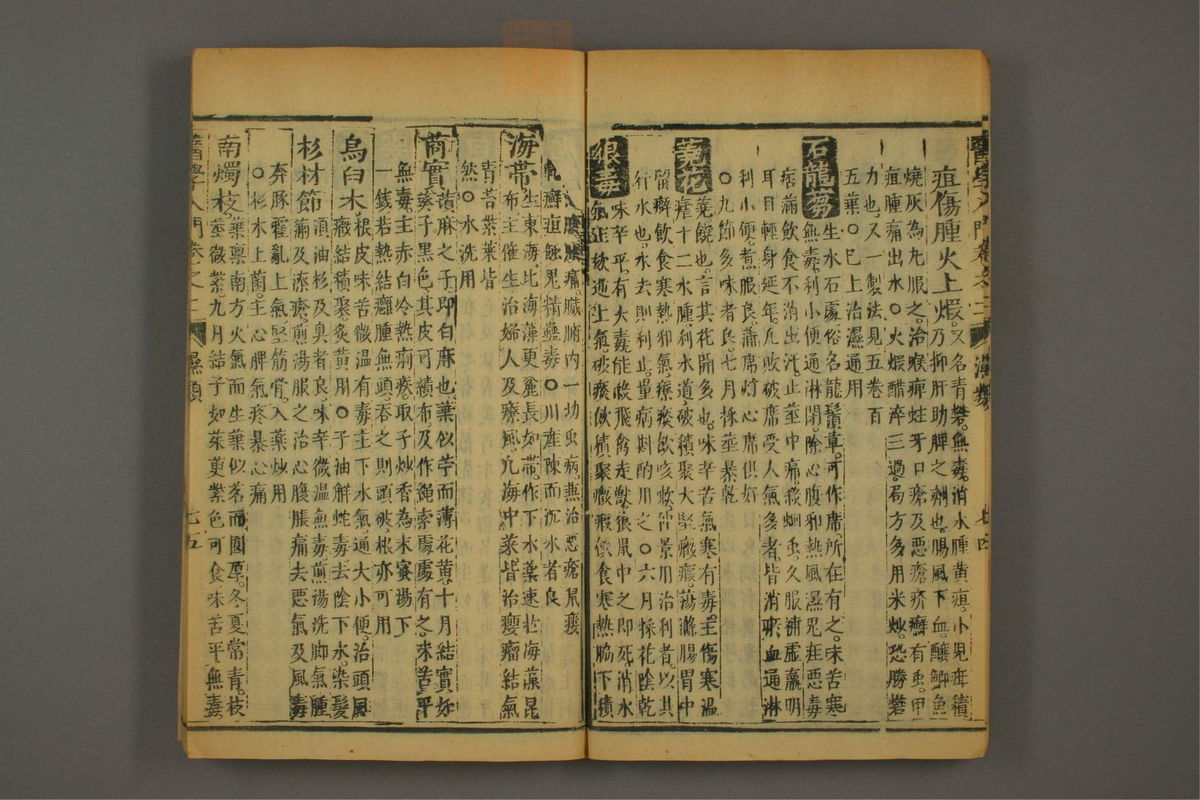 疽傷腫火上煆又名青礬無毒消水腫黃疸小兒疳積
燒灰為丸服之治喉痺蛀牙口瘡及惡瘡疥癬有虫甲
疽腫痛出水○火煆醋淬三過局方多用米炒恐勝礬
力也又一製法見五卷百
五藥○已上治濕通用
石龍芻生水石處俗名龍鬚草可作席所在有之味苦寒
無毒利小便通淋閉除心腹邪熱風濕鬼疰惡毒
痞滿飲食不消出汗止莖中痛殺蛔虫久服補虛羸明
耳目輕身延年○九敗破席受人氣多者皆消瘀血通淋
利小便煮服良蒲席燈心席俱好
○九節多味者良七月採莖暴乾
蕘花蕘饒也言其花開多也味辛苦氣寒有毒主傷寒溫
瘧十二水腫利水道破積聚大堅癥瘕蕩滌腸胃中
留癖飲食寒熱邪氣療痰飲咳嗽皆景用治利者以其
行水也水去則利止量病斟酌用之○六月採花陰乾
狼毒味辛平有大毒能殺飛鳥走獸狼鼠中之即死消水
氣主欬逆上氣破痰飲積聚癥瘕傷食寒熱脇下積
腹脹痛臟腑內一切虫病兼治惡瘡鼠瘻
乾癬疽蝕鬼精蠱毒○川產陳而沉水者良
海帶生東海比海藻更麤長如帶作下水藥速於海藻昆
布主催生治婦人及療風亢海中菜皆治癭瘤結氣
青苔紫菜皆
然○水洗用
𦺡實𦺡麻之子即白麻也葉似苧而薄花黃十月結實如
葵子黑色其皮可績布及作繩索處處有之味苦平
無毒主赤白冷熱痢瘡取子炒香為末蜜湯下
一錢若熱結癰腫無頭吞之則頭破根亦可用
烏臼木根皮味苦微溫有毒主下水氣通大小便治頭風
癥結積聚炙黃用○子油解蛇毒去陰下水染髮
杉材節須油杉及臭者良味辛微溫無毒煎湯洗脚氣腫
滿及漆瘡煎湯服之治心腹脹痛去惡氣及風毒
奔豚霍亂上氣堅筋骨入藥炒用
○杉木上菌主心脾氣疼暴心痛
南燭枝葉稟南方火氣而生葉似茗而圓厚冬夏常青枝
莖微紫九月結子如茱萸紫色可食味苦平無毒
醫學入門卷之二 濕類 七五